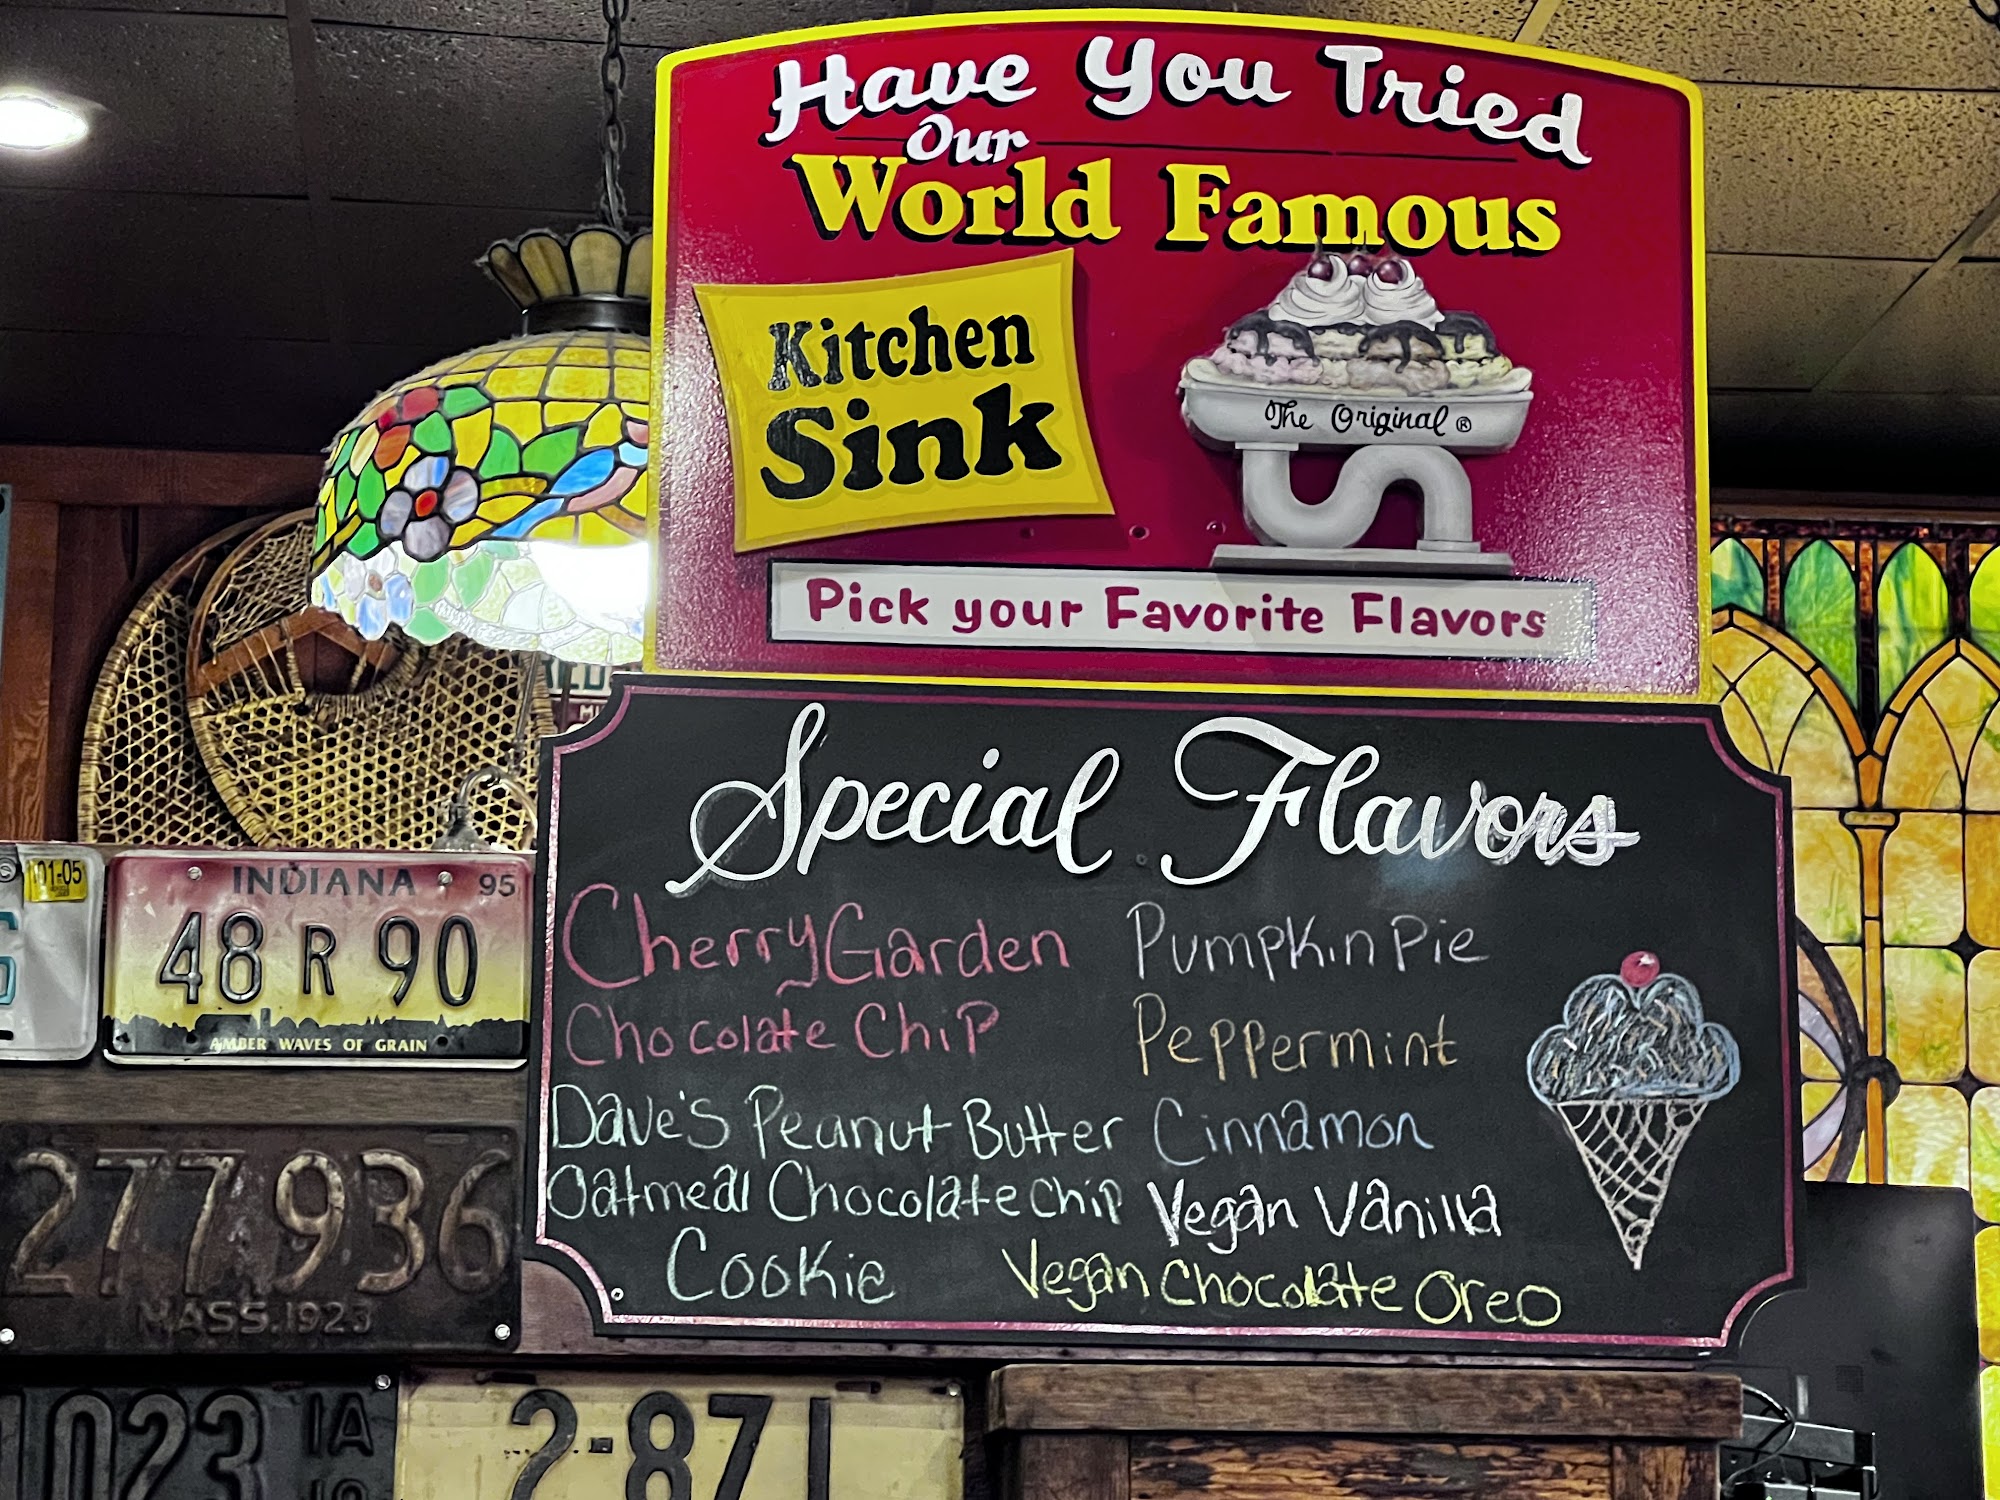 Have You Tried
Our
World Famous
Kitchen
Sink
The Original ®
Pick your Favorite Flavors
Special Flavors
Cherry Garden
Chocolate Chip
Dave's Peanut Butter
Oatmeal Chocolate Chip
Cookie
Pumpkin Pie
Peppermint
Cinnamon
Vegan Vanilla
Vegan Chocolate Oreo
01-05
INDIANA 95
48 R 90
AMBER WAVES OF GRAIN
277 936
MASS. 1923
1023 IA
2-871